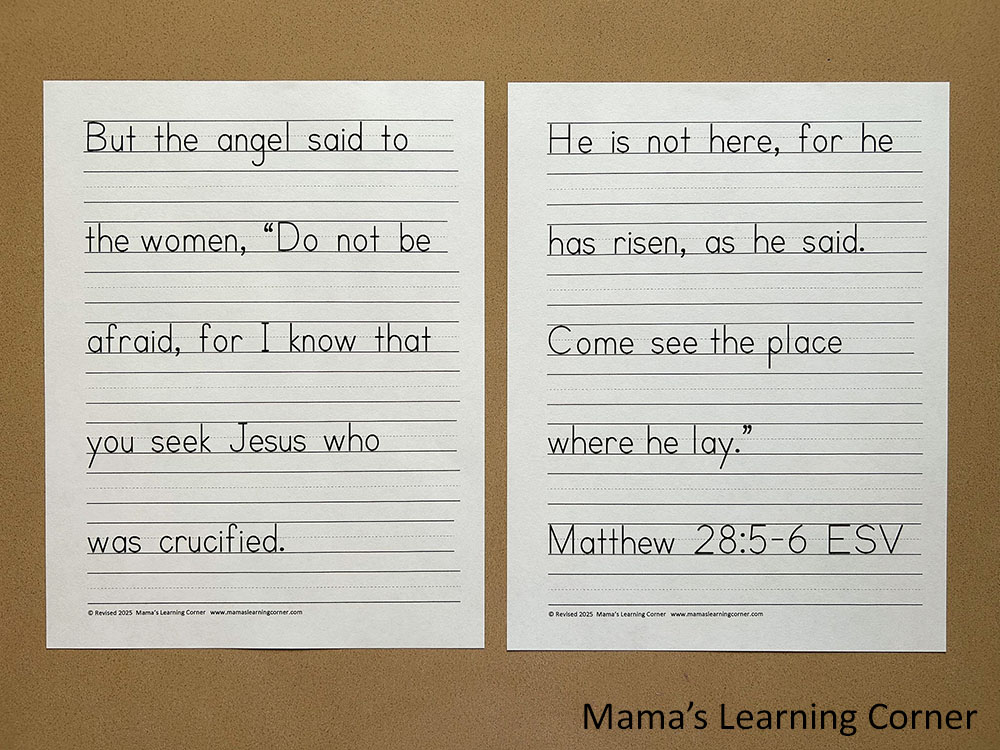 But the angel said to
the women, “Do not be
afraid, for I know that
you seek Jesus who
was crucified.
© Revised 2025 Mama's Learning Corner www.mamaslearningcorner.com
He is not here, for he
has risen, as he said.
Come see the place
where he lay.”
Matthew 28:5-6 ESV
© Revised 2025 Mama's Learning Corner www.mamaslearningcorner.com
Mama’s Learning Corner